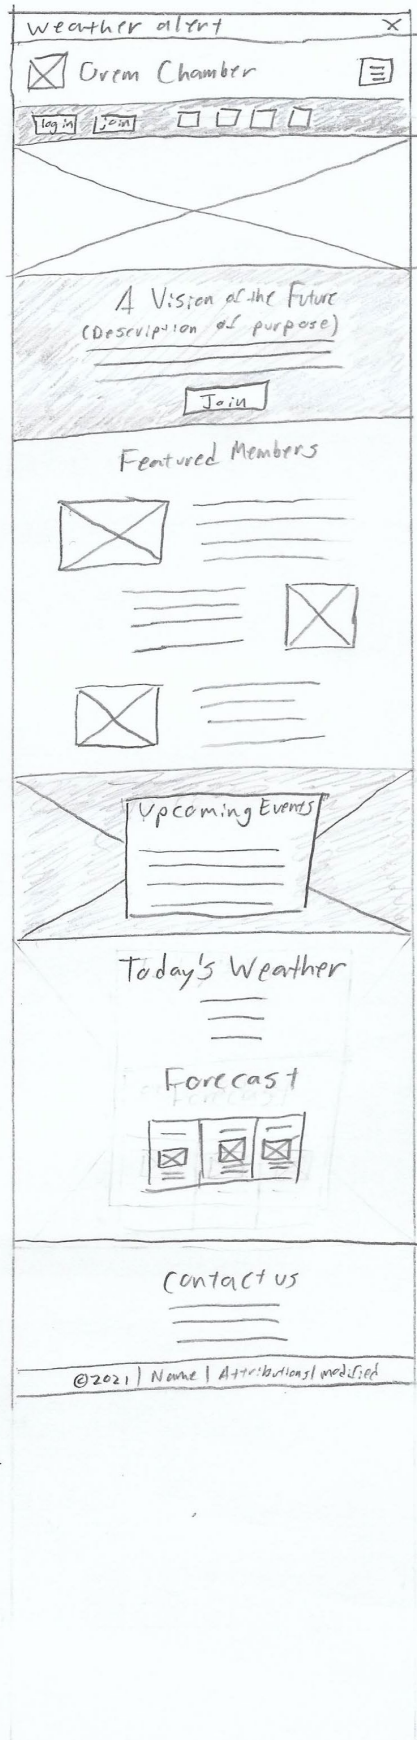 Weather alert X
Orem Chamber
log in join
A Vision of the Future
(Description of purpose)
Join
Featured Members
Upcoming Events
Today's Weather
Forecast
Contact us
©2021 | Name | Attributions | modified